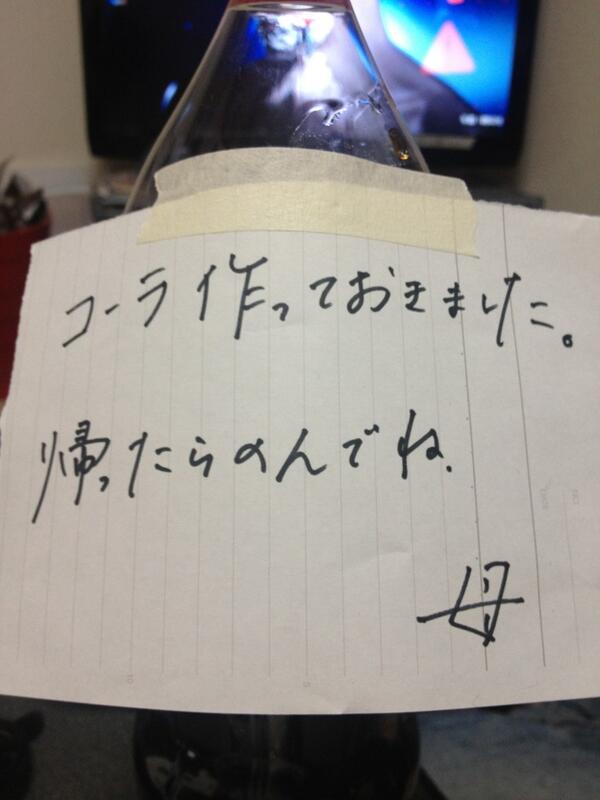 コーラ作っておきました。
帰ったらのんでね.
母